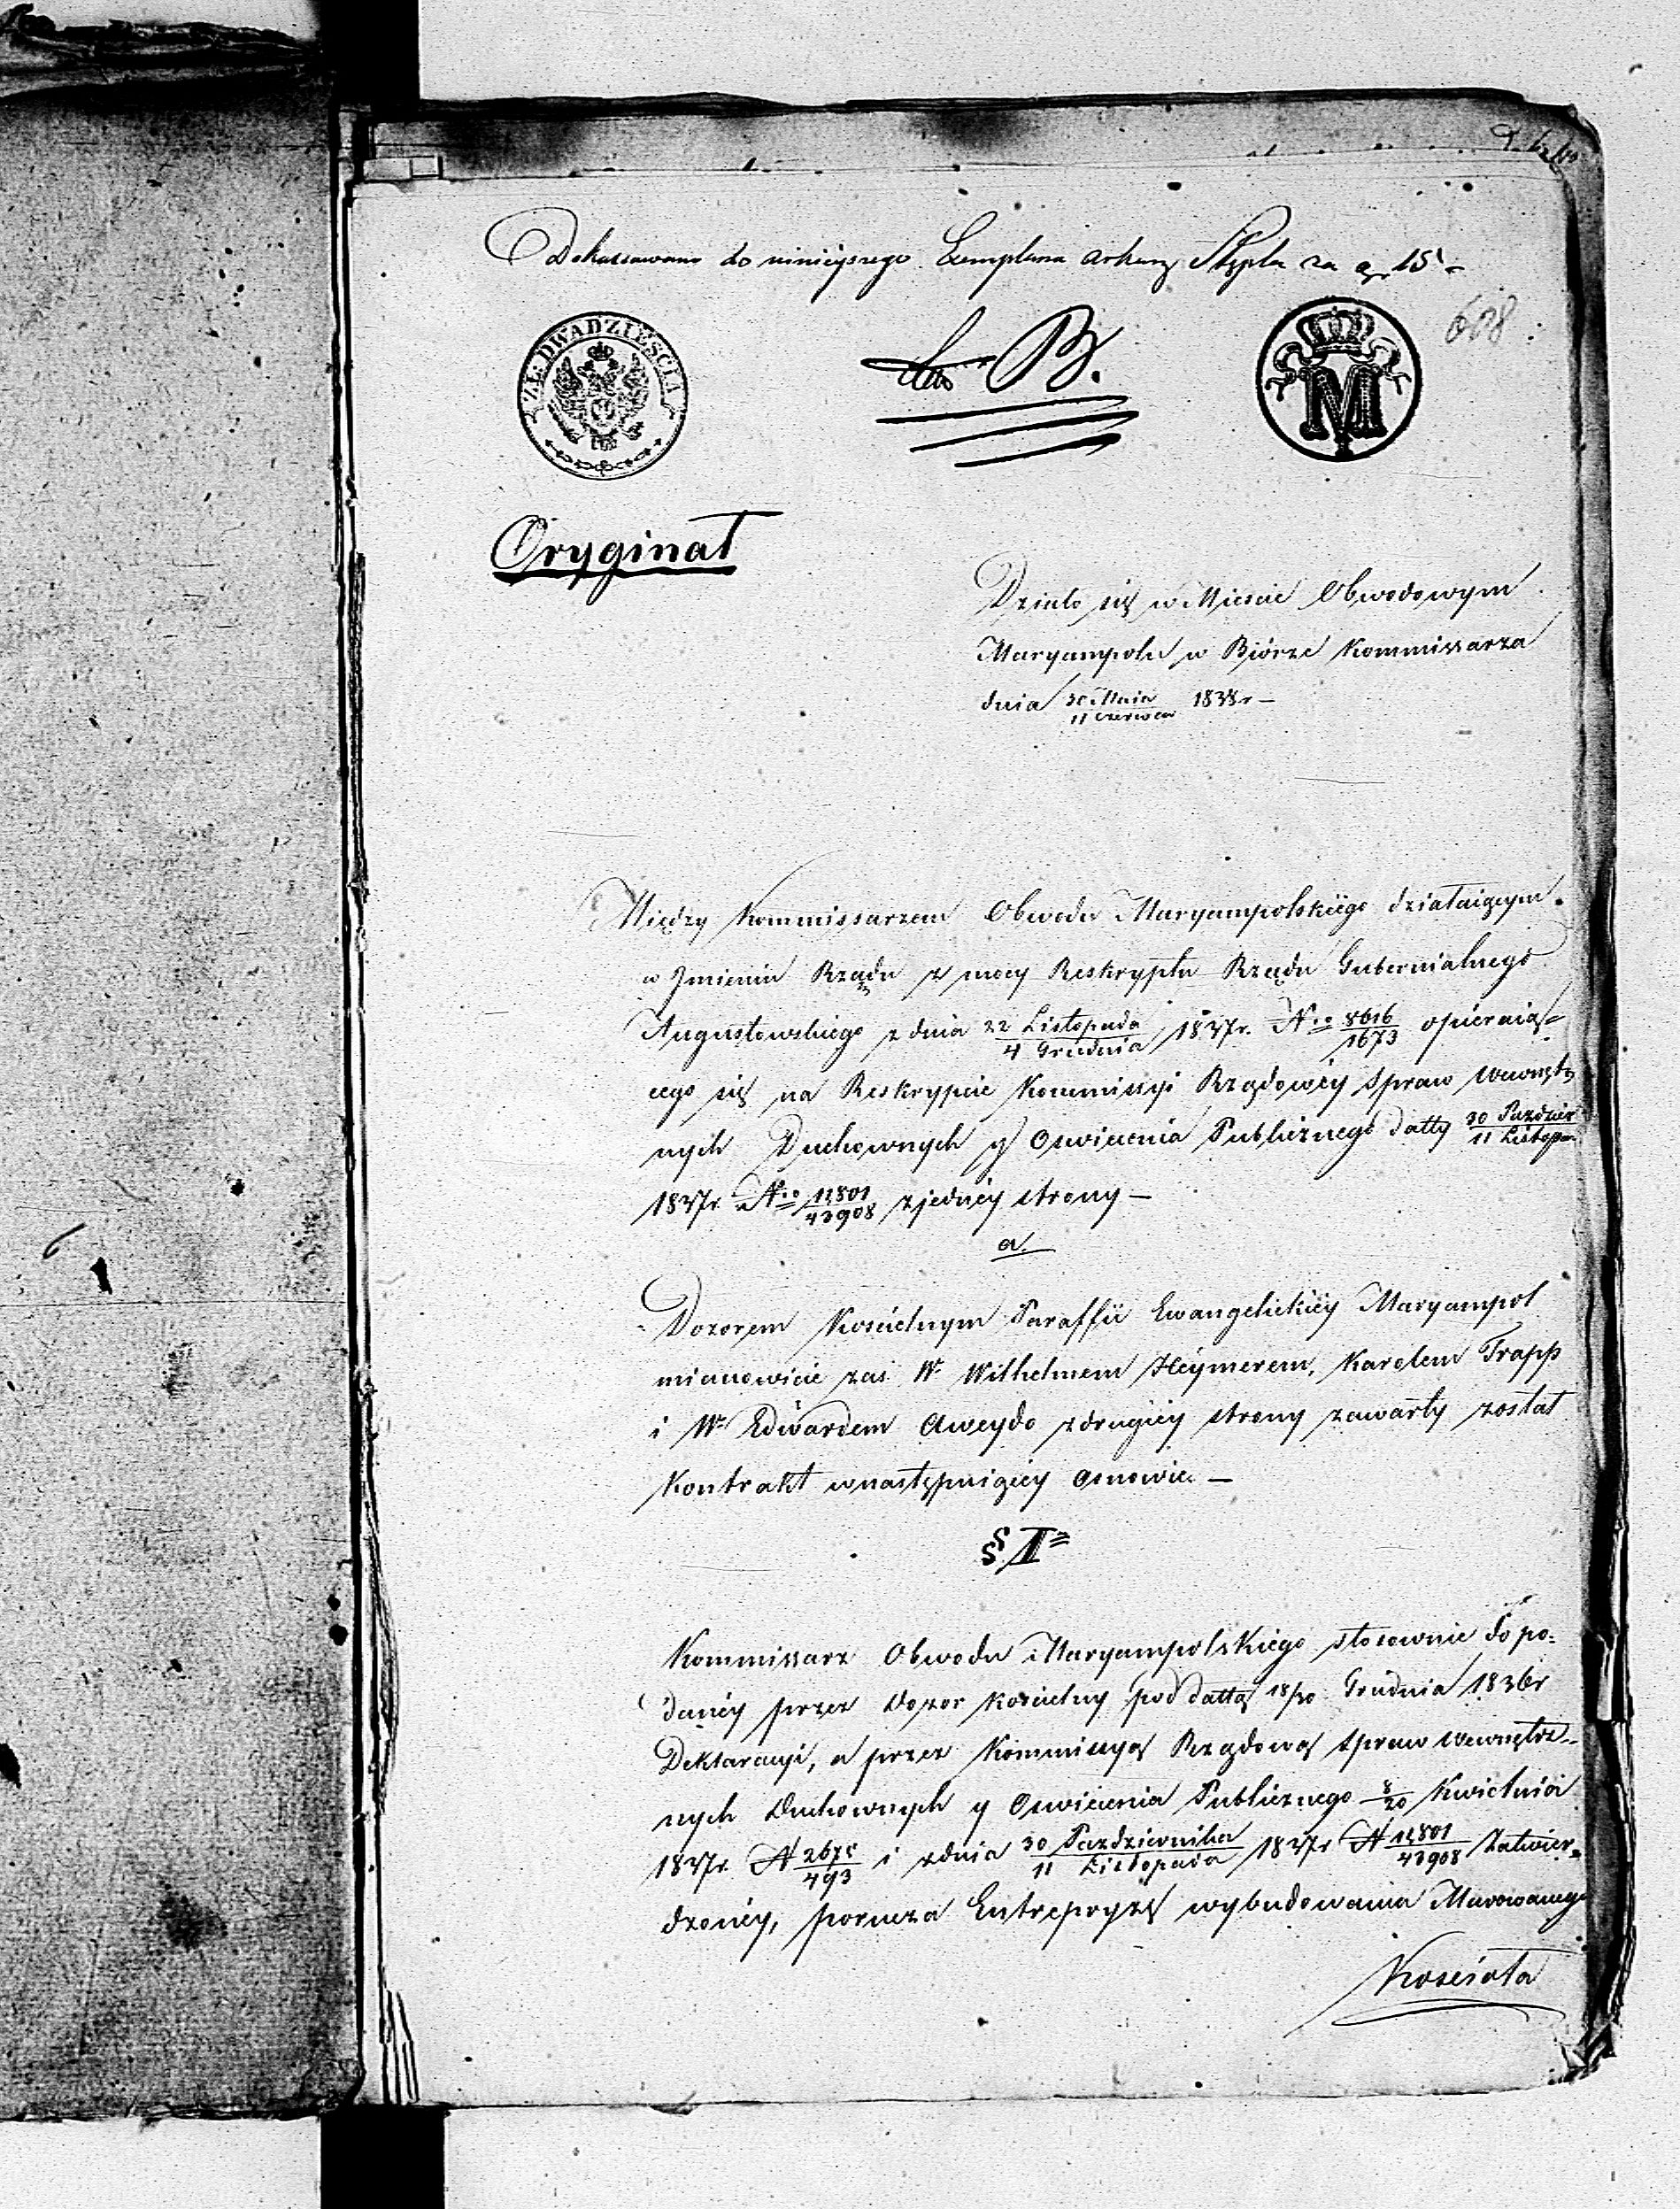 Dokassowano do ninieyszego Exemplarza arkusz Stępla za gr 15 -
608
ZŁ: DWADZIEŚCIA
Lit: B.
M
Oryginał
Działo się w Mieście Obwodowym
Maryampolu w Biórze Kommissarza
dnia 30 Maia / 11 Czerwca 1838 r -
Między Kommissarzem Obwodu Maryampolskiego działaiącym
w Jmieniu Rządu z mocy Reskryptu Rządu Gubernialnego
Augustowskiego z dnia 22 Listopada / 4 Grudnia 1837 r. No 8616 / 1673 opieraią=
cego się na Reskrypcie Kommissyi Rządowéy Spraw Wewnętrz
nych Duchownych y Oswiecenia Publicznego datty 30 Paździer / 11 Listopa
1837 r No 11,801 / 43908 z jednéy strony —
a.
Dozorem Kościelnym Paraffii Ewangelickiéy Maryampol
mianowicie zaś W Wilhelmem Heymerem, Karolem Trapp
i W Edwardem Aweyde z drugiéy strony zawarty został
Kontrakt w następuiącéy osnowie —
§ I
Kommissarz Obwodu Maryampolskiego stosownie do po=
danéy przez Dozor kościelny pod dattą 18/30 Grudnia 1836 r
Deklaracyi, a przez Kommissyą Rządową Spraw Wewnętrz=
nych Duchownych y Oswiecenia Publicznego 8/20 Kwietnia
1837 r. N 2675 / 493 i z dnia 30 Pazdziernika / 11 Listopada 1837 r N 11,801 / 43908 Zatwier=
dzonéy, porucza Entrepryzę wybudowania Murowanego
Kościoła